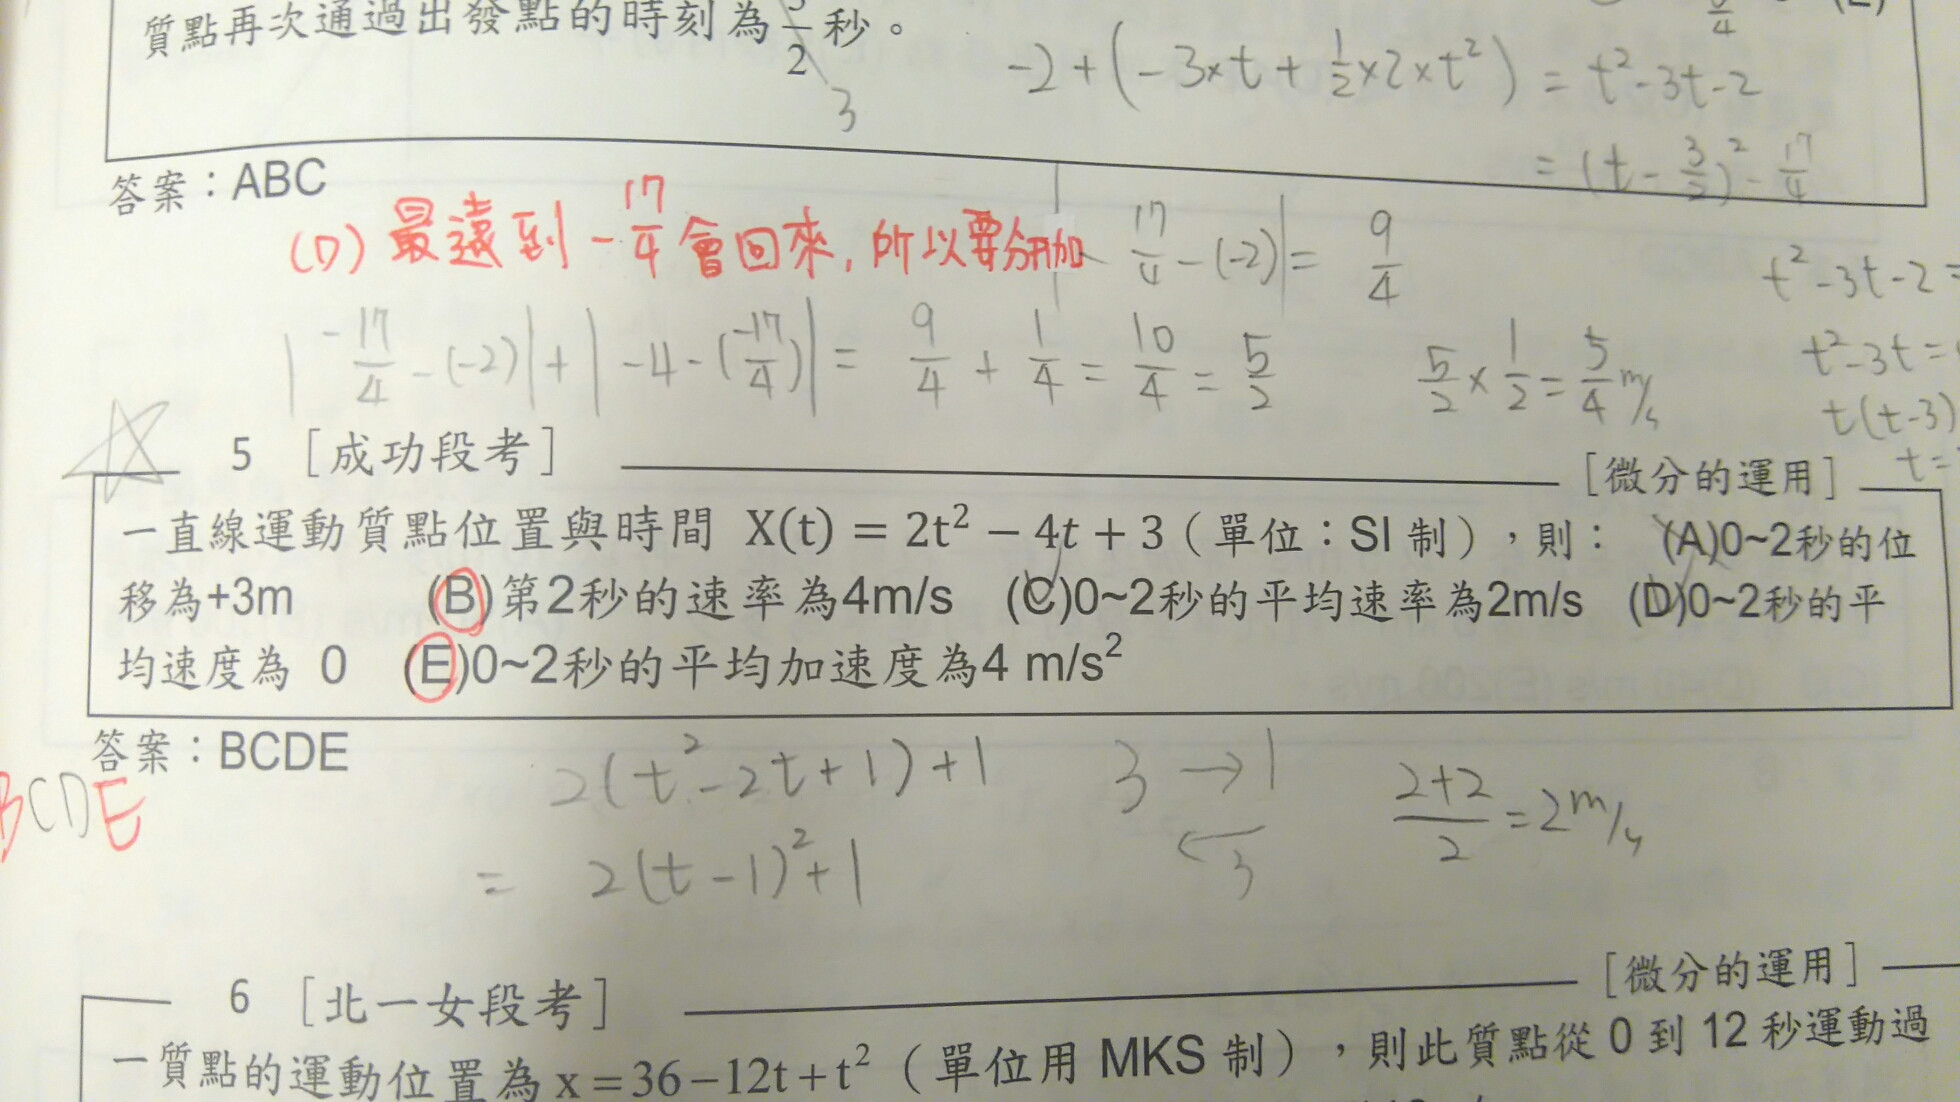 質點再次通過出發點的時刻為 3/2 秒。
3
-2+(-3×t+½×2×t²) = t²-3t-2
= (t-3/2)²-17/4
答案：ABC
(D) 最遠到 -17/4 會回來，所以要分開加
|-17/4-(-2)|= 9/4
t²-3t-2=
|-17/4-(-2)|+|-4-(-17/4)|= 9/4+1/4=10/4=5/2
5/2×1/2=5/4 m/s
t²-3t=
t(t-3)
t=
5 [成功段考] [微分的運用]
一直線運動質點位置與時間 X(t) = 2t² − 4t + 3（單位：SI 制），則： (A)0~2秒的位
移為+3m (B)第2秒的速率為4m/s (C)0~2秒的平均速率為2m/s (D)0~2秒的平
均速度為 0 (E)0~2秒的平均加速度為4 m/s²
答案：BCDE
BCDE
2(t²-2t+1)+1
3→1
←
3
(2+2)/2=2m/s
= 2(t-1)²+1
6 [北一女段考] [微分的運用]
一質點的運動位置為 x=36−12t+t²（單位用 MKS 制），則此質點從 0 到 12 秒運動過